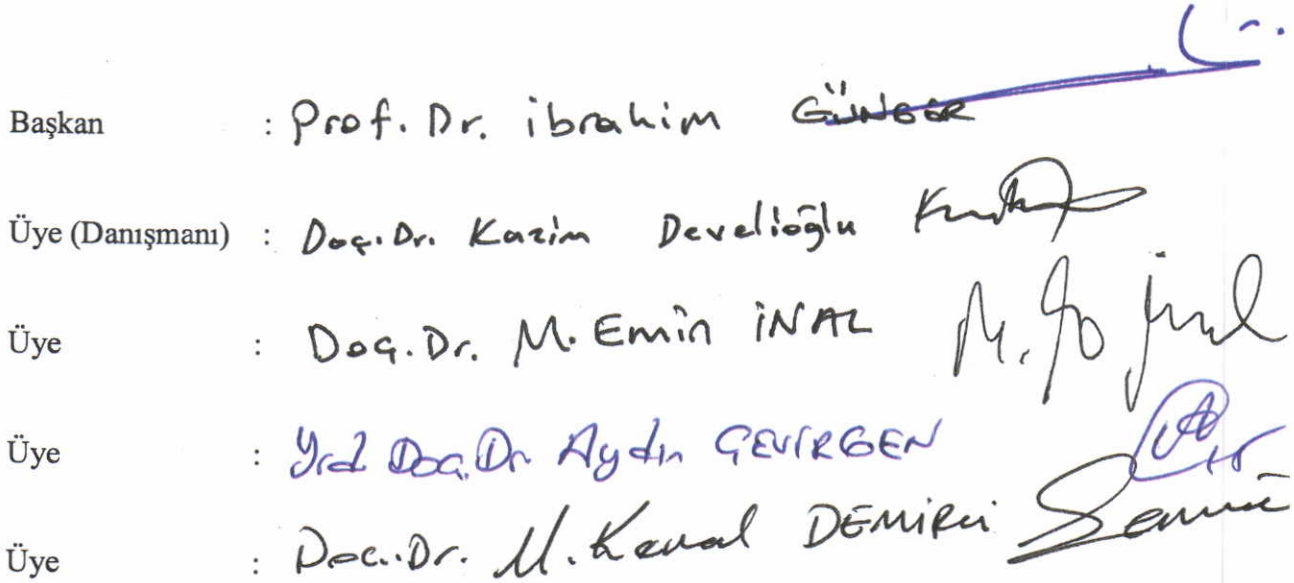 Başkan : Prof. Dr. İbrahim GÜNGÖR
Üye (Danışmanı) : Doç. Dr. Kazim Develioğlu
Üye : Doç. Dr. M. Emin İNAL
Üye : Yrd. Doç. Dr. Aydın ÇEVİRGEN
Üye : Doc. Dr. M. Kemal DEMİRCİ